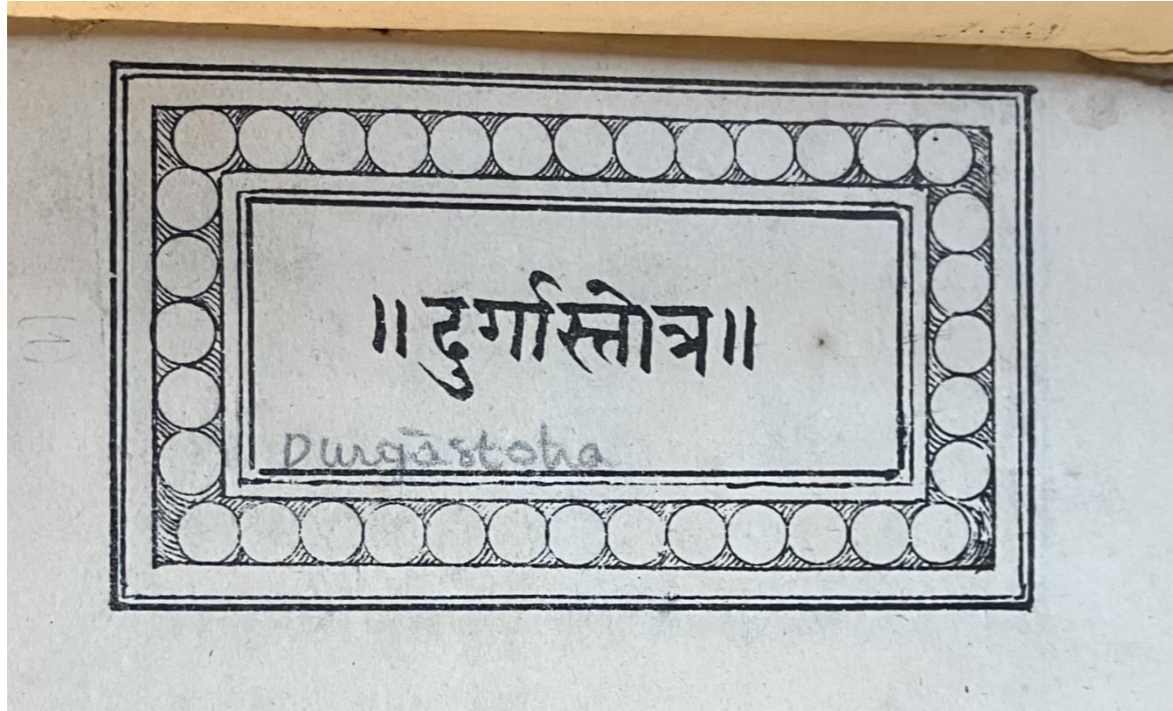 ॥ दुर्गास्तोत्र ॥
Durgāstotra